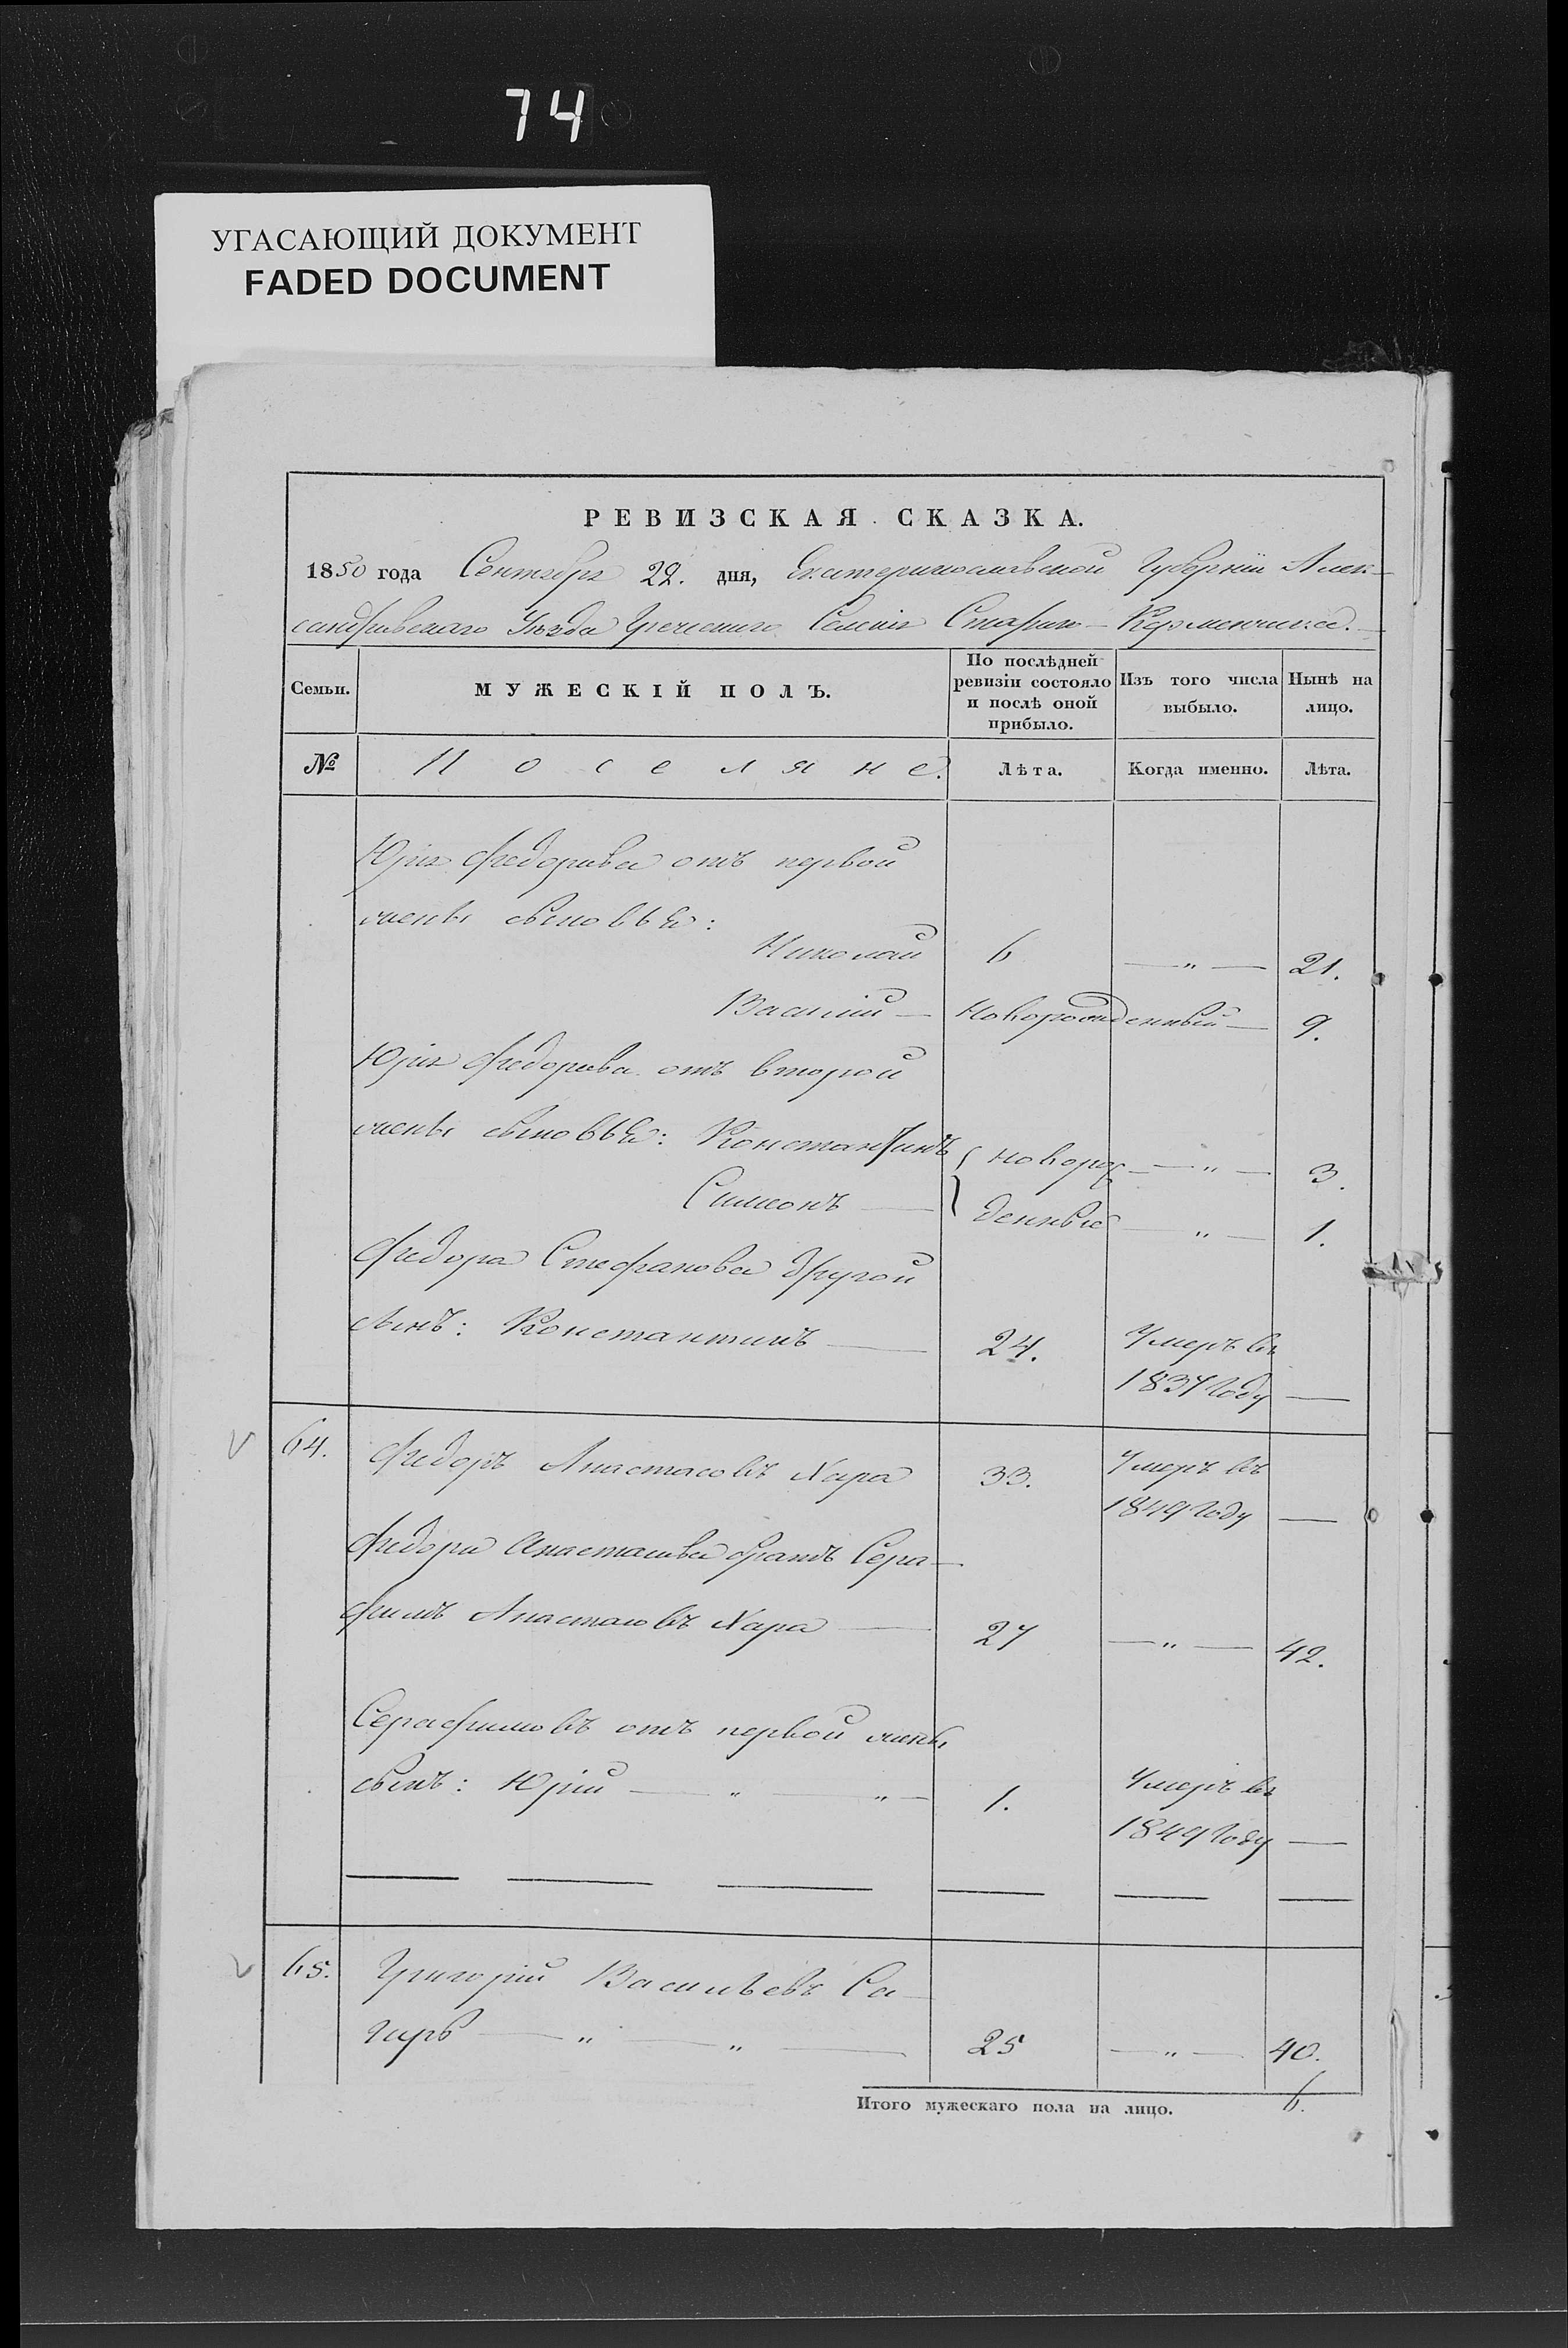 74
УГАСАЮЩИЙ ДОКУМЕНТ
FADED DOCUMENT
РЕВИЗСКАЯ СКАЗКА.
1850 года Сентября 22. дня, Екатеринославской Губерніи Алек-
сандровскаго Уѣзда Греческаго Селенія Стараго-Керменчика.
Семьи. МУЖЕСКІЙ ПОЛЪ. По послѣдней ревизіи состояло и послѣ оной прибыло. Изъ того числа выбыло. Нынѣ на лицо.
№ Поселяне. Лѣта. Когда именно. Лѣта.
Юрія Федорова отъ первой
жены сыновья:
Николай 6 — " — 21.
Василій — Новорожденный — 9.
Юрія Федорова отъ второй
жены сыновья: Константинъ новорож- — " — 3.
Симеонъ — денные — " — 1.
Федора Стефанова другой
сынъ: Константинъ — 24. Умеръ въ
1837 году —
64. Федоръ Анастасовъ Хара 33. Умеръ въ
1849 году —
Федора Анастасова братъ Сера-
фимъ Анастасовъ Хара — 27 — " — 42.
Серафимовъ отъ первой жены
сынъ: Юрій — " — " — 1. Умеръ въ
1849 году —
65. Григорій Васильевъ Са-
гиръ — " — " — 25 — " — 40.
Итого мужескаго пола на лицо. 6.